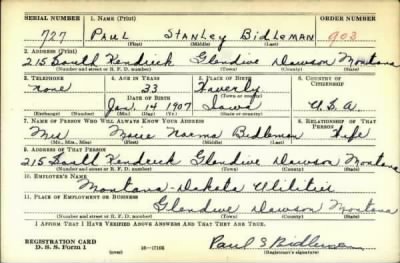 SERIAL NUMBER 1. NAME (Print) ORDER NUMBER
727 PAUL STANLEY BIDLEMAN 903
(First) (Middle) (Last)
2. ADDRESS (Print)
215 South Kendrick Glendive Dawson Montana
(Number and street or R. F. D. number) (Town) (County) (State)
3. TELEPHONE 4. AGE IN YEARS 5. PLACE OF BIRTH 6. COUNTRY OF CITIZENSHIP
none 33 Waverly
DATE OF BIRTH (Town or county)
Jan. 14 1907 Iowa U.S.A.
(Exchange) (Number) (Mo.) (Day) (Yr.) (State or country)
7. NAME OF PERSON WHO WILL ALWAYS KNOW YOUR ADDRESS 8. RELATIONSHIP OF THAT PERSON
Mrs Norma Bidleman Wife
(Mr., Mrs., Miss) (First) (Middle) (Last)
9. ADDRESS OF THAT PERSON
215 South Kendrick Glendive Dawson Montana
(Number and street or R. F. D. number) (Town) (County) (State)
10. EMPLOYER'S NAME
Montana-Dakota Utilities
11. PLACE OF EMPLOYMENT OR BUSINESS
Glendive Dawson Montana
(Number and street or R. F. D. number) (Town) (County) (State)
I AFFIRM THAT I HAVE VERIFIED ABOVE ANSWERS AND THAT THEY ARE TRUE.
REGISTRATION CARD
D. S. S. Form 1 (over) 16—17105 Paul S Bidleman
(Registrant's signature)